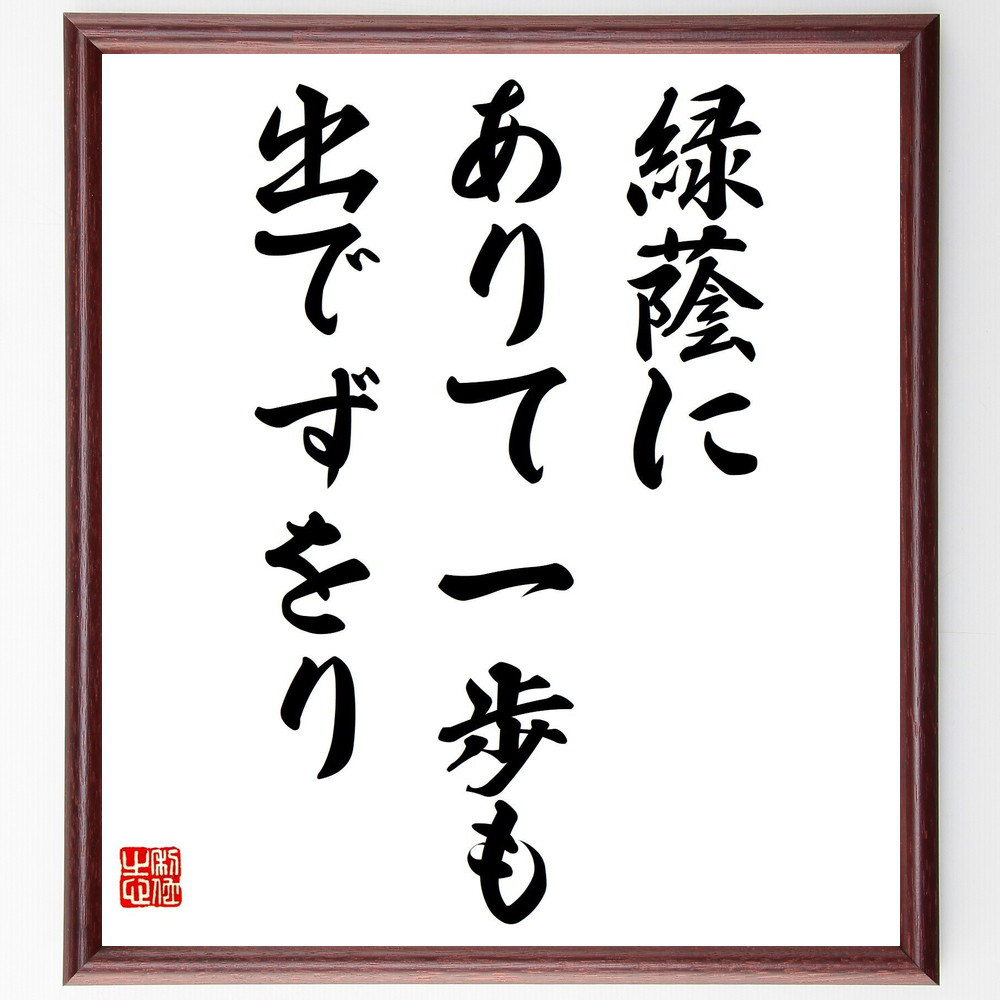 緑蔭に
ありて一歩も
出でずをり